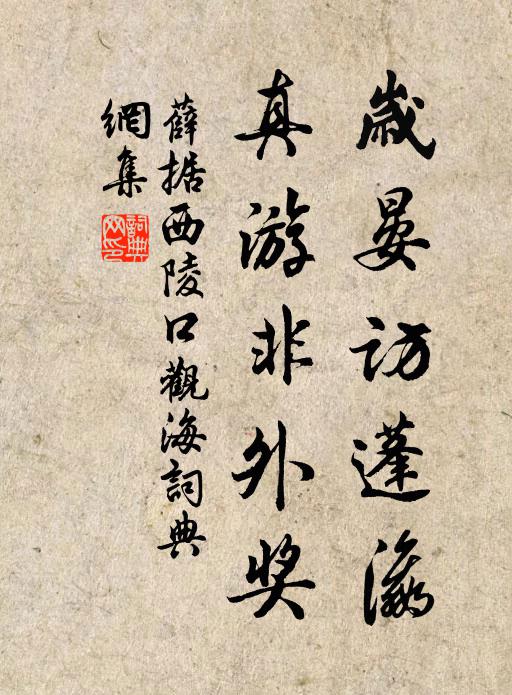 歲晏訪蓬瀛
真游非外奖
薛据西陵口觀海詞典
網集
詞典网印